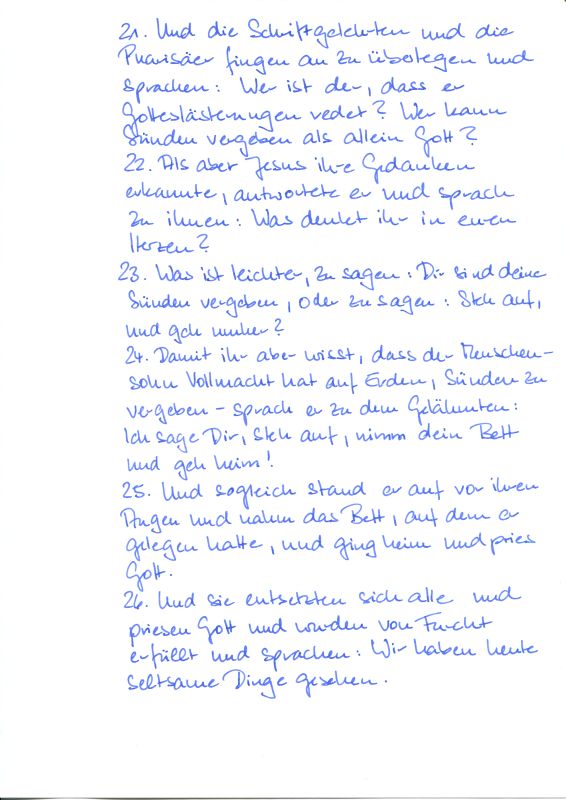 21. Und die Schriftgelehrten und die
Pharisäer fingen an zu überlegen und
sprachen: Wer ist der, dass er
Gotteslästerungen redet? Wer kann
Sünden vergeben als allein Gott?
22. Als aber Jesus ihre Gedanken
erkannte, antwortete er und sprach
zu ihnen: Was denket ihr in euren
Herzen?
23. Was ist leichter, zu sagen: Dir sind deine
Sünden vergeben, oder zu sagen: Steh auf,
und geh umher?
24. Damit ihr aber wisst, dass der Menschen-
sohn Vollmacht hat auf Erden, Sünden zu
vergeben - sprach er zu dem Gelähmten:
Ich sage Dir, steh auf, nimm dein Bett
und geh heim!
25. Und sogleich stand er auf vor ihren
Augen und nahm das Bett, auf dem er
gelegen hatte, und ging heim und pries
Gott.
26. Und sie entsetzten sich alle und
priesen Gott und wurden von Furcht
erfüllt und sprachen: Wir haben heute
seltsame Dinge gesehen.